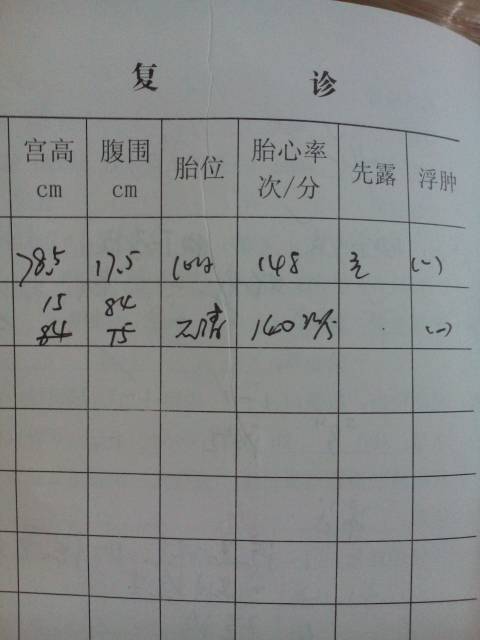 复 诊
宫高 cm 腹围 cm 胎位 胎心率 次/分 先露 浮肿
78.5 17.5 148 (-)
15 84
84 75 不清 140次/分 (-)